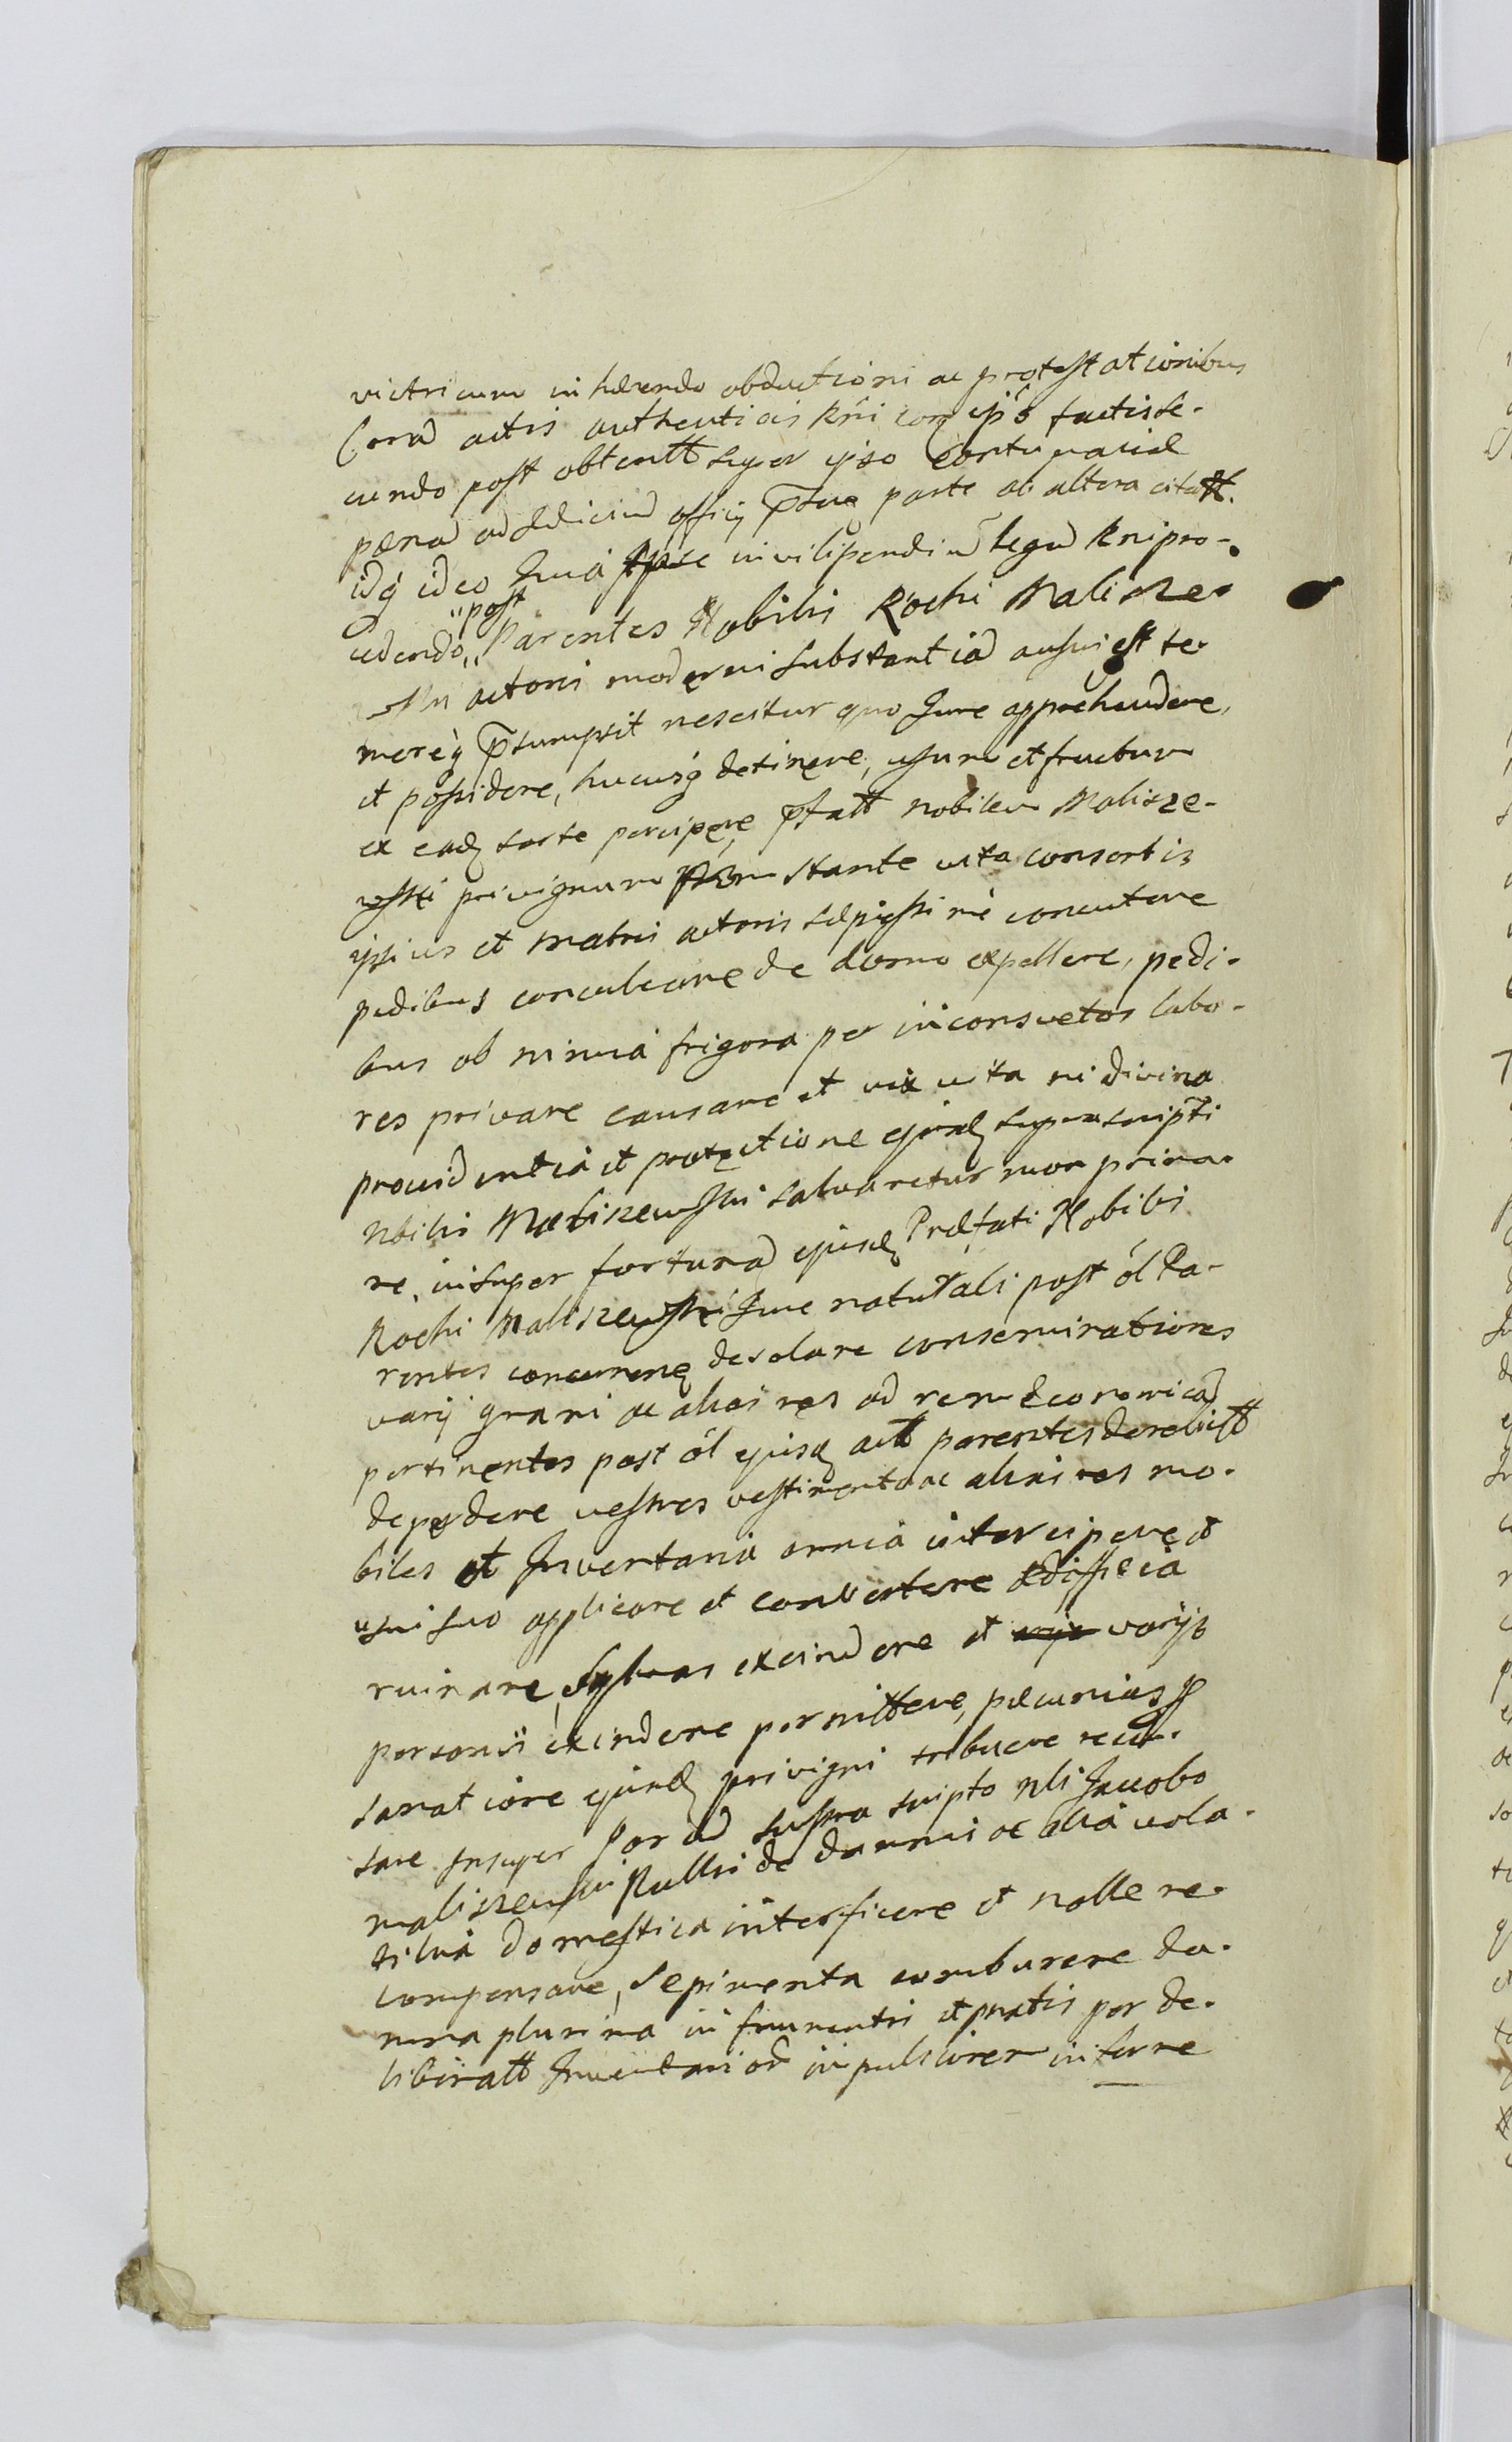 victricum inhærendo obductioni ac protestationibus
Corã actis authenticis Rñi coꝝ ipõ factis se-
cundo post obtentt super ipso contumaciæ
pœnã ad Judiciũ officÿ p̃tũq parte ab altera citatt.
idq́ ideo Quia ipse in vilipendiũ legũ Rni pro-
cedendo "post" Parentes Nobilis Rochi Malisze-
wski actoris moderni substantiã ausus est te-
merèq́ p̃sumpsit nescitur quo Jure apprehendere,
et possidere, hucusq́ detinere, usum et fructum
ex eadꝫ sorte percipere, p̃fatt nobilem Malisze-
wski privignum stante vita consortis
ipsius et matris actoris sæpissimè concutere
pedibus conculcare de domo expellere, pedi-
bus ob nimia frigora per inconsvetos labo-
res privare causare et vix vita ni divina
providentia et protectione ejusdꝫ suprascripti
Nbilis Maliszewski salvaretur non priva-
re, insuper fortunã ejusdꝫ Præfati Nobilis
Rochi Maliszewski Jure naturali post ól Pa-
rentes concurrenꝫ desolare consemirationes
varÿ grani ac alias res ad rem æconomicã
pertinentes post ól ejusdꝫ actt parentes derelictt
deperdere vestres vestimenta ac alias res mo-
biles et Inventaria omnia intercipere et
usui suo applicare et convertere ædifficia
ruinare, Sylvas excindere et varÿs
personis excindere permittere, pæcunias p̱
sanatione ejusdꝫ privigni tribuere recu-
sare Insuper Porcũ suprascripto Nli Jacobo
maliszewski Rulli de damnis ac alia vola-
tilia domestica interficere et nolle re-
compensare, Sepimenta comburere da-
mna plurima in frumentis et pratis per de-
liberatt Inventariorũ impulsionem inferre